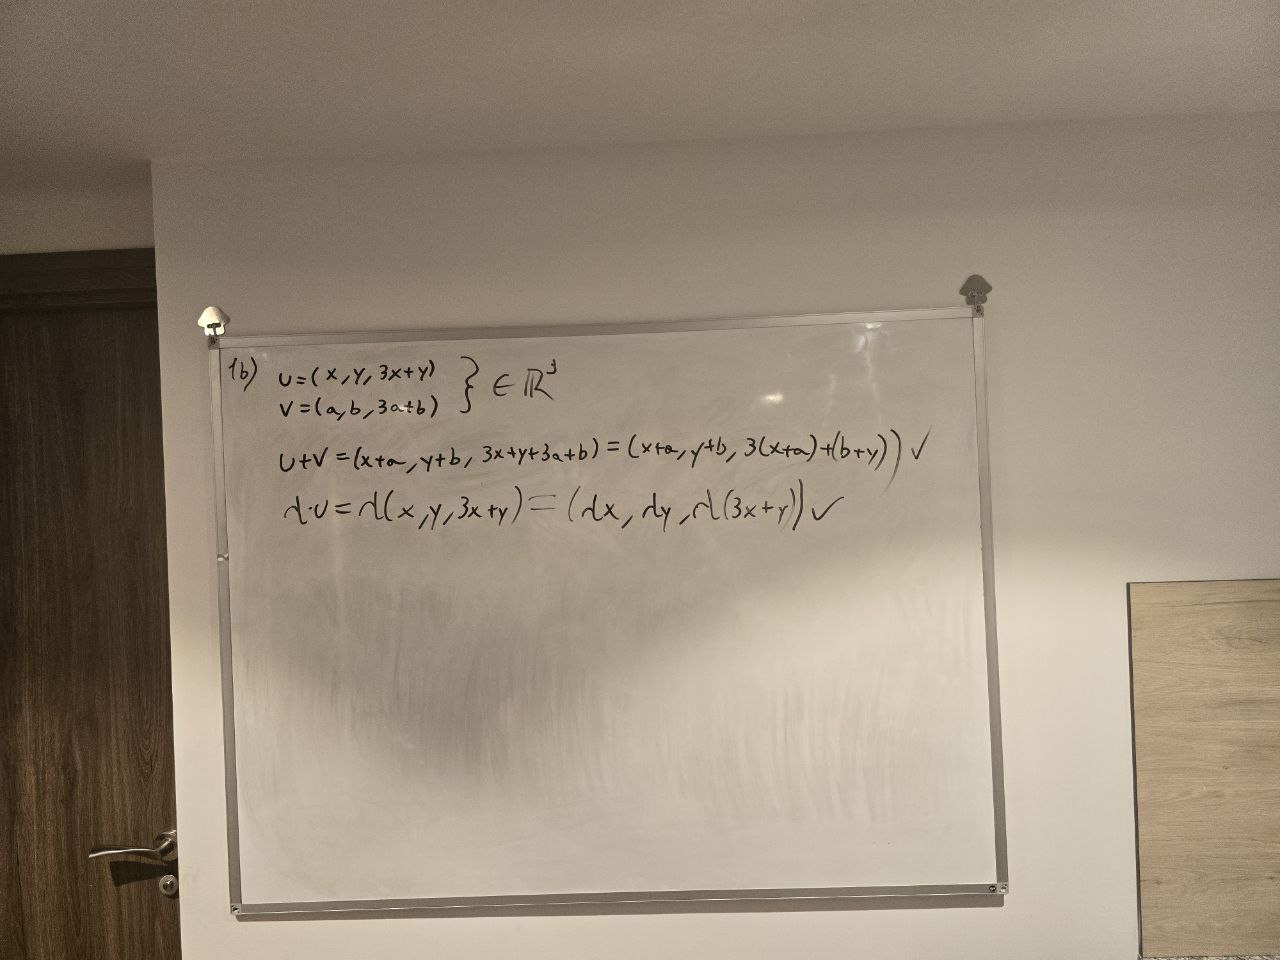 1b) u=(x,y,3x+y)
v=(a,b,3a+b) } ∈ ℝ³
u+v=(x+a, y+b, 3x+y+3a+b)=(x+a, y+b, 3(x+a)+(b+y)) ✓
λ·u=λ(x,y,3x+y)=(λx, λy, λ(3x+y)) ✓